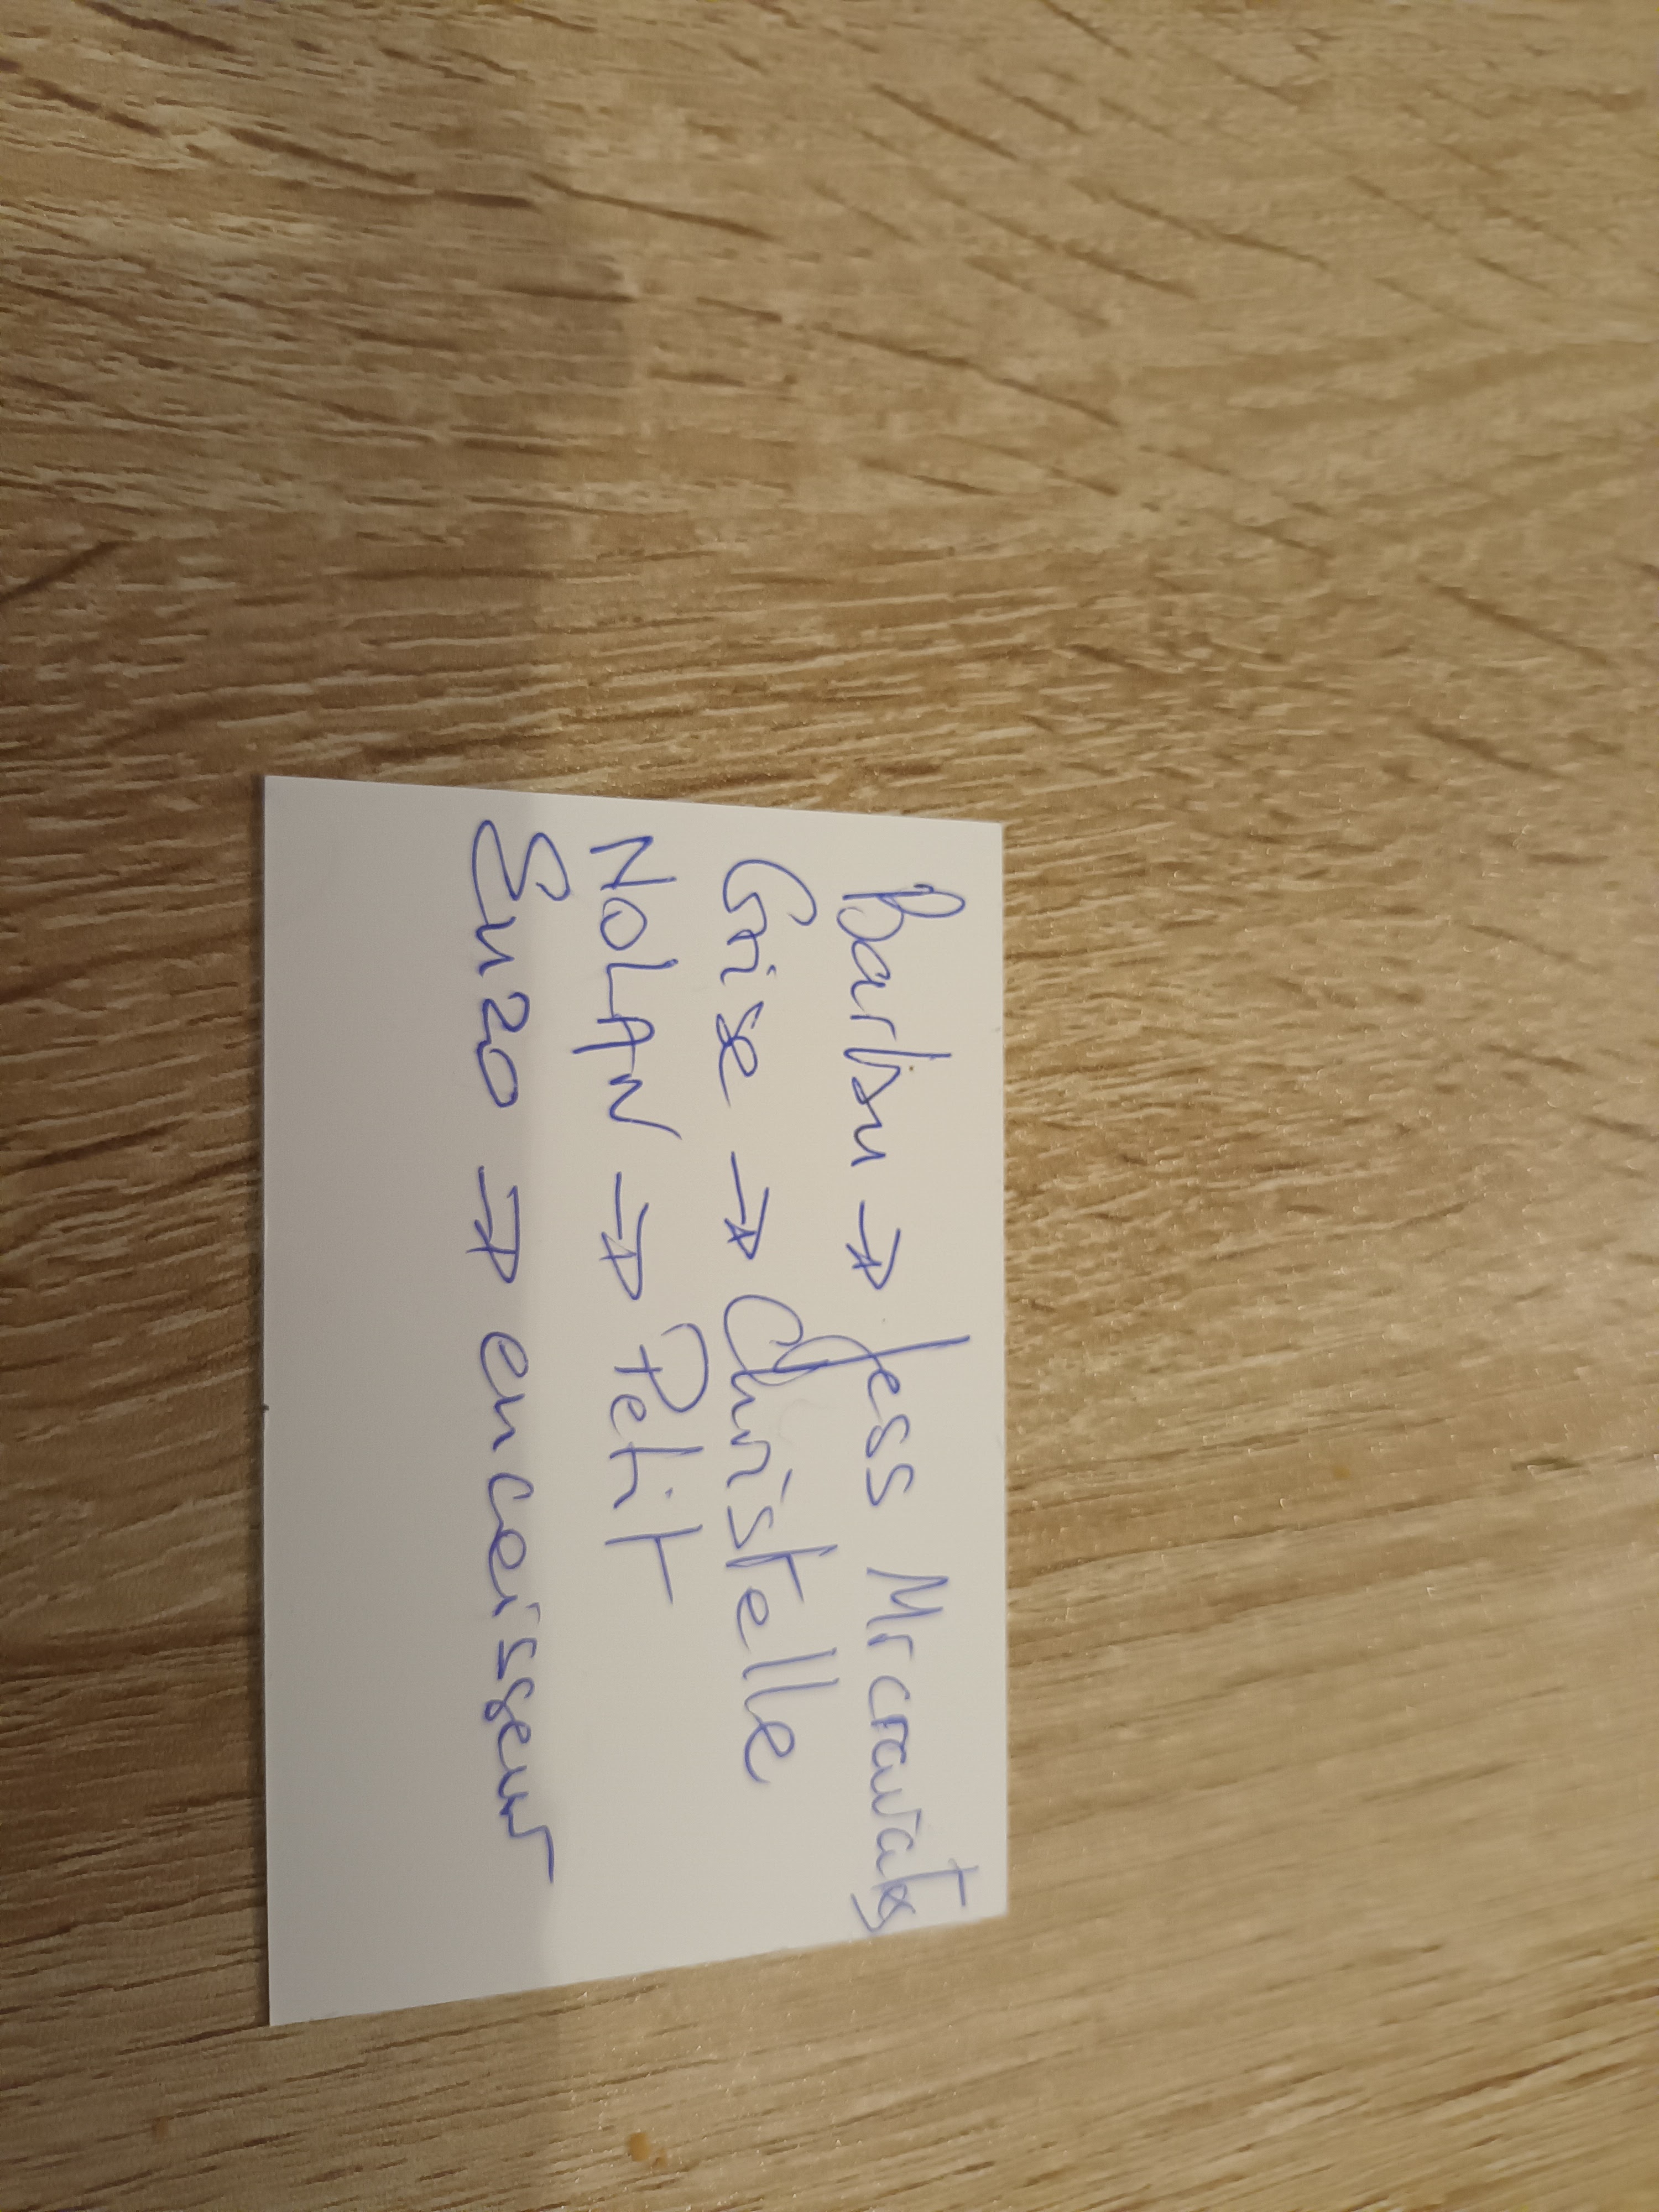 → Jess Mr cravate
Grise → Christelle
NOLAN → Petit
Enzo → encaisseur